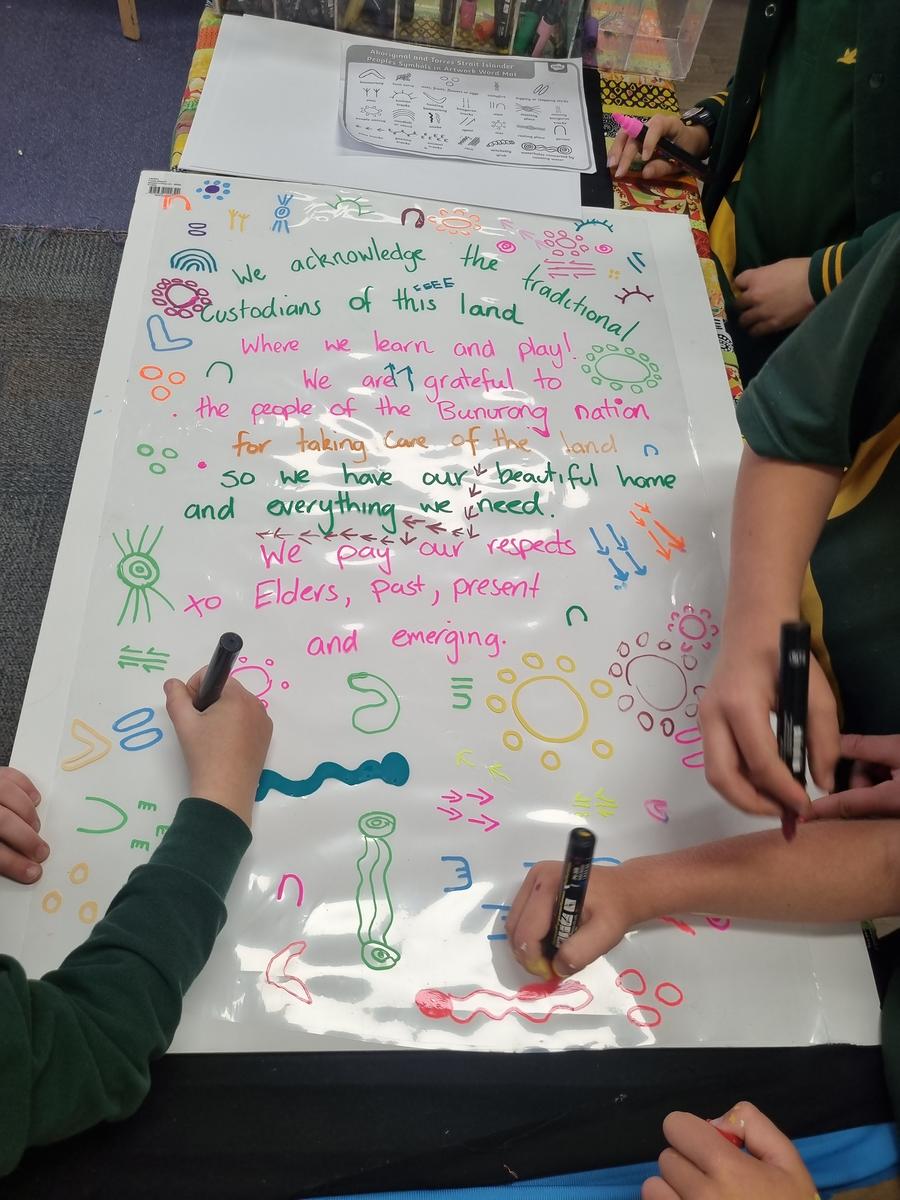 Aboriginal and Torres Strait Islander
Peoples Symbols in Artwork Word Mat
We acknowledge the traditional
Custodians of this land
Where we learn and play!
We are grateful to
the people of the Bunurong nation
for taking care of the land
so we have our beautiful home
and everything we need.
We pay our respects
xo Elders, past, present
and emerging.